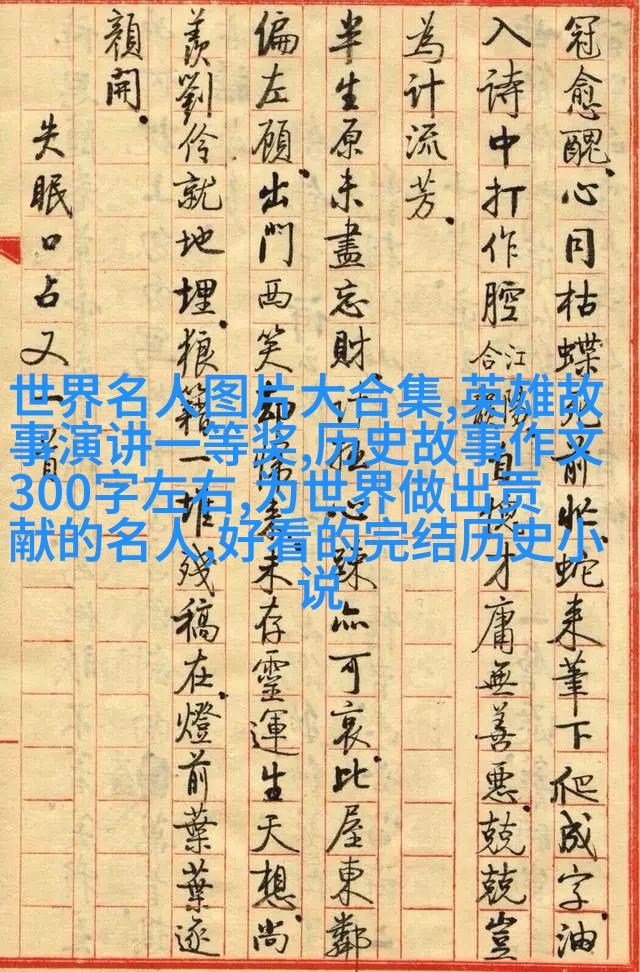 冠愈醜。心同枯蝶前蛇来筆下爬成字。油
入詩中打作腔江陽合自曉才庸無善惡。兢兢豈
為計流芳。
半生原未盡忘財計拙心疎亦可哀。比屋東鄰
偏左顧。出門西笑却歸来未存靈運生天想。尚
羨劉伶就地埋。狼籍一堆殘稿在。燈前葉葉逐
顏開。
失眠口占又一首
世界名人图片大合集,英雄故
事演讲一等奖,历史故事作文
300字左右,为世界做出贡
献的名人,好看的完结历史小
说